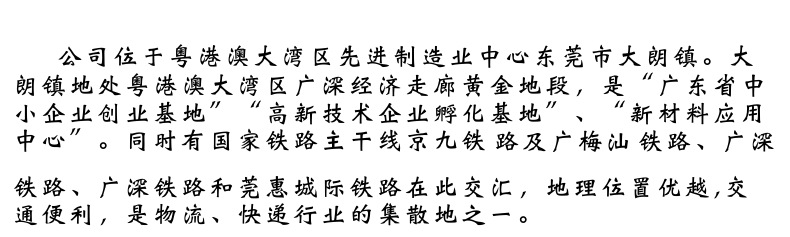 公司位于粤港澳大湾区先进制造业中心东莞市大朗镇。大
朗镇地处粤港澳大湾区广深经济走廊黄金地段，是“广东省中
小企业创业基地”“高新技术企业孵化基地”、“新材料应用
中心”。同时有国家铁路主干线京九铁 路及广梅汕 铁路、广深
铁路、广深铁路和莞惠城际铁路在此交汇，地理位置优越,交
通便利，是物流、快递行业的集散地之一。